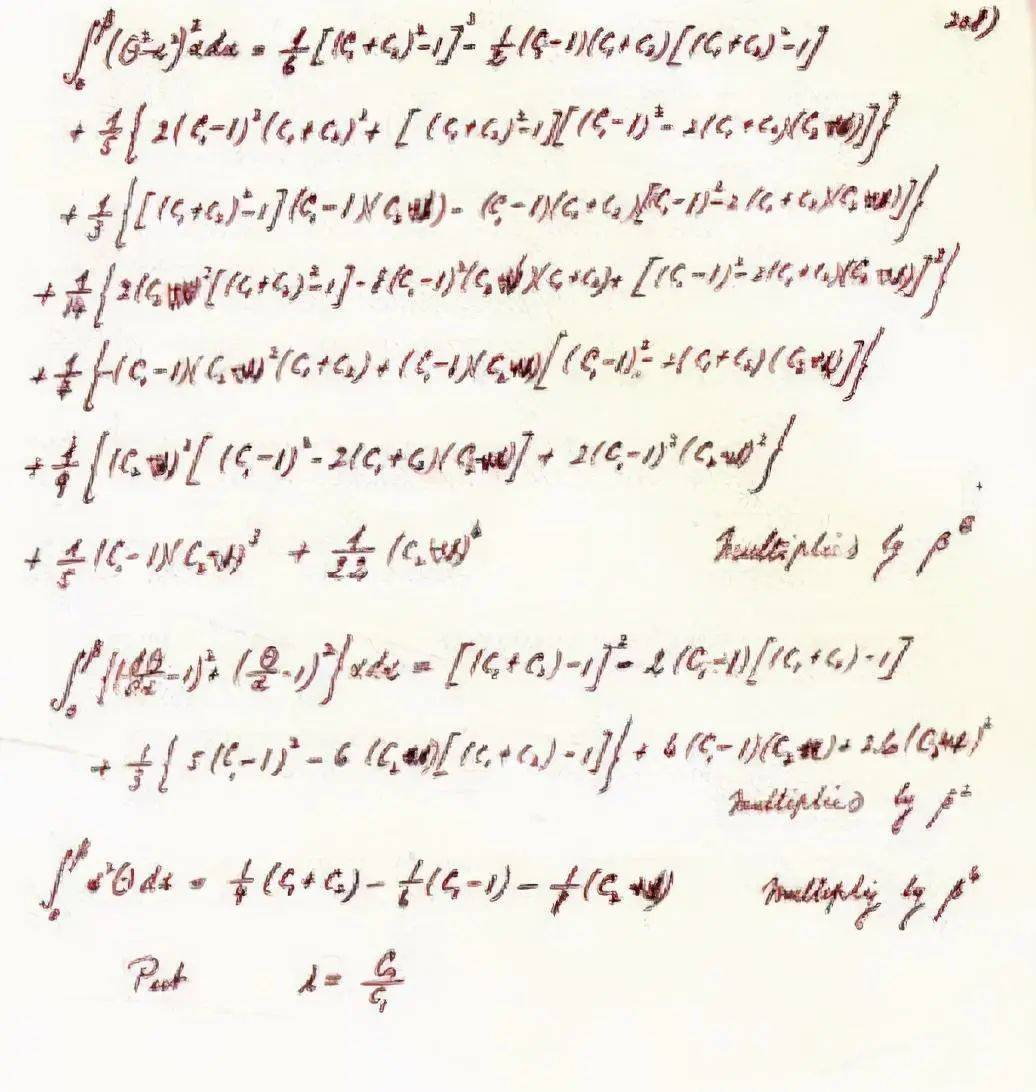 20d)
∫₀^β (θ²-α²)² α dα = 1/6 [(C₁+C₂)²-1]² - 1/2 (C₁-1)(C₁+C₂)[(C₁+C₂)²-1]
+ 1/5 { 2(C₁-1)²(C₁+C₂)² + [(C₁+C₂)²-1][(C₁-1)² - 2(C₁+C₂)(C₂ )] }
+ 1/3 { [(C₁+C₂)²-1](C₁-1)(C₂ ) - (C₁-1)(C₁+C₂)[(C₁-1)² - 2(C₁+C₂)(C₂ )] }
+ 1/14 { 2(C₂ )²[(C₁+C₂)²-1] - 8(C₁-1)²(C₂ )(C₁+C₂) + [(C₁-1)² - 2(C₁+C₂)(C₂ )]² }
+ 1/2 { -(C₁-1)(C₂ )²(C₁+C₂) + (C₁-1)(C₂ )[(C₁-1)² - 2(C₁+C₂)(C₂ )] }
+ 1/9 { (C₂ )²[(C₁-1)² - 2(C₁+C₂)(C₂ )] + 2(C₁-1)²(C₂ )² }
+ 1/5 (C₁-1)(C₂ )³ + 1/22 (C₂ )⁴ Multiplied by β⁶
∫₀^β {(dθ/dα - 1)² + (θ/α - 1)²} α dα = [(C₁+C₂)-1]² - 2(C₁-1)[(C₁+C₂)-1]
+ 1/3 { 5(C₁-1)² - 6(C₂ )[(C₁+C₂)-1] } + 6(C₁-1)(C₂ ) + 2.6(C₂ )²
Multiplied by β²
∫₀^β α²θ dα = 1/4 (C₁+C₂) - 1/6 (C₁-1) - 1/8 (C₂ ) Multiply by β⁴
Put λ = C₂/C₁